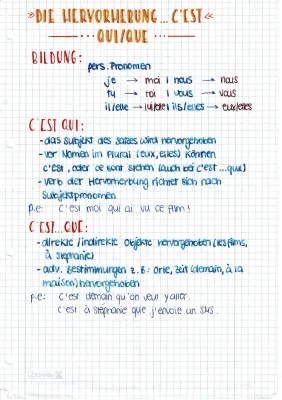 DIE HERVORHEBUNG... C'EST
QUI/QUE
BILDUNG:
pers. Pronomen
je → moi | nous → nous
tu → toi | vous → vous
il/elle → lui/elle | ils/elles → eux/elles
C'EST QUI:
- das Subjekt des Satzes wird hervorgehoben
- vor Nomen im Plural (eux, elles) können
c'est, oder ce sont stehen (auch bei c'est ... que)
- Verb der Hervorhebung richtet sich nach
Subjektpronomen
p.e: C'est moi qui ai vu ce film!
C'EST...QUE:
- direkte / indirekte Objekte hervorgehoben (les films,
à Stephanie)
- adv. Bestimmungen z.B: Orte, Zeit (demain, à la
maison) hervorgehoben
p.e: C'est demain qu'on veut y aller.
C'est à Stephanie que j'envoie un SMS.